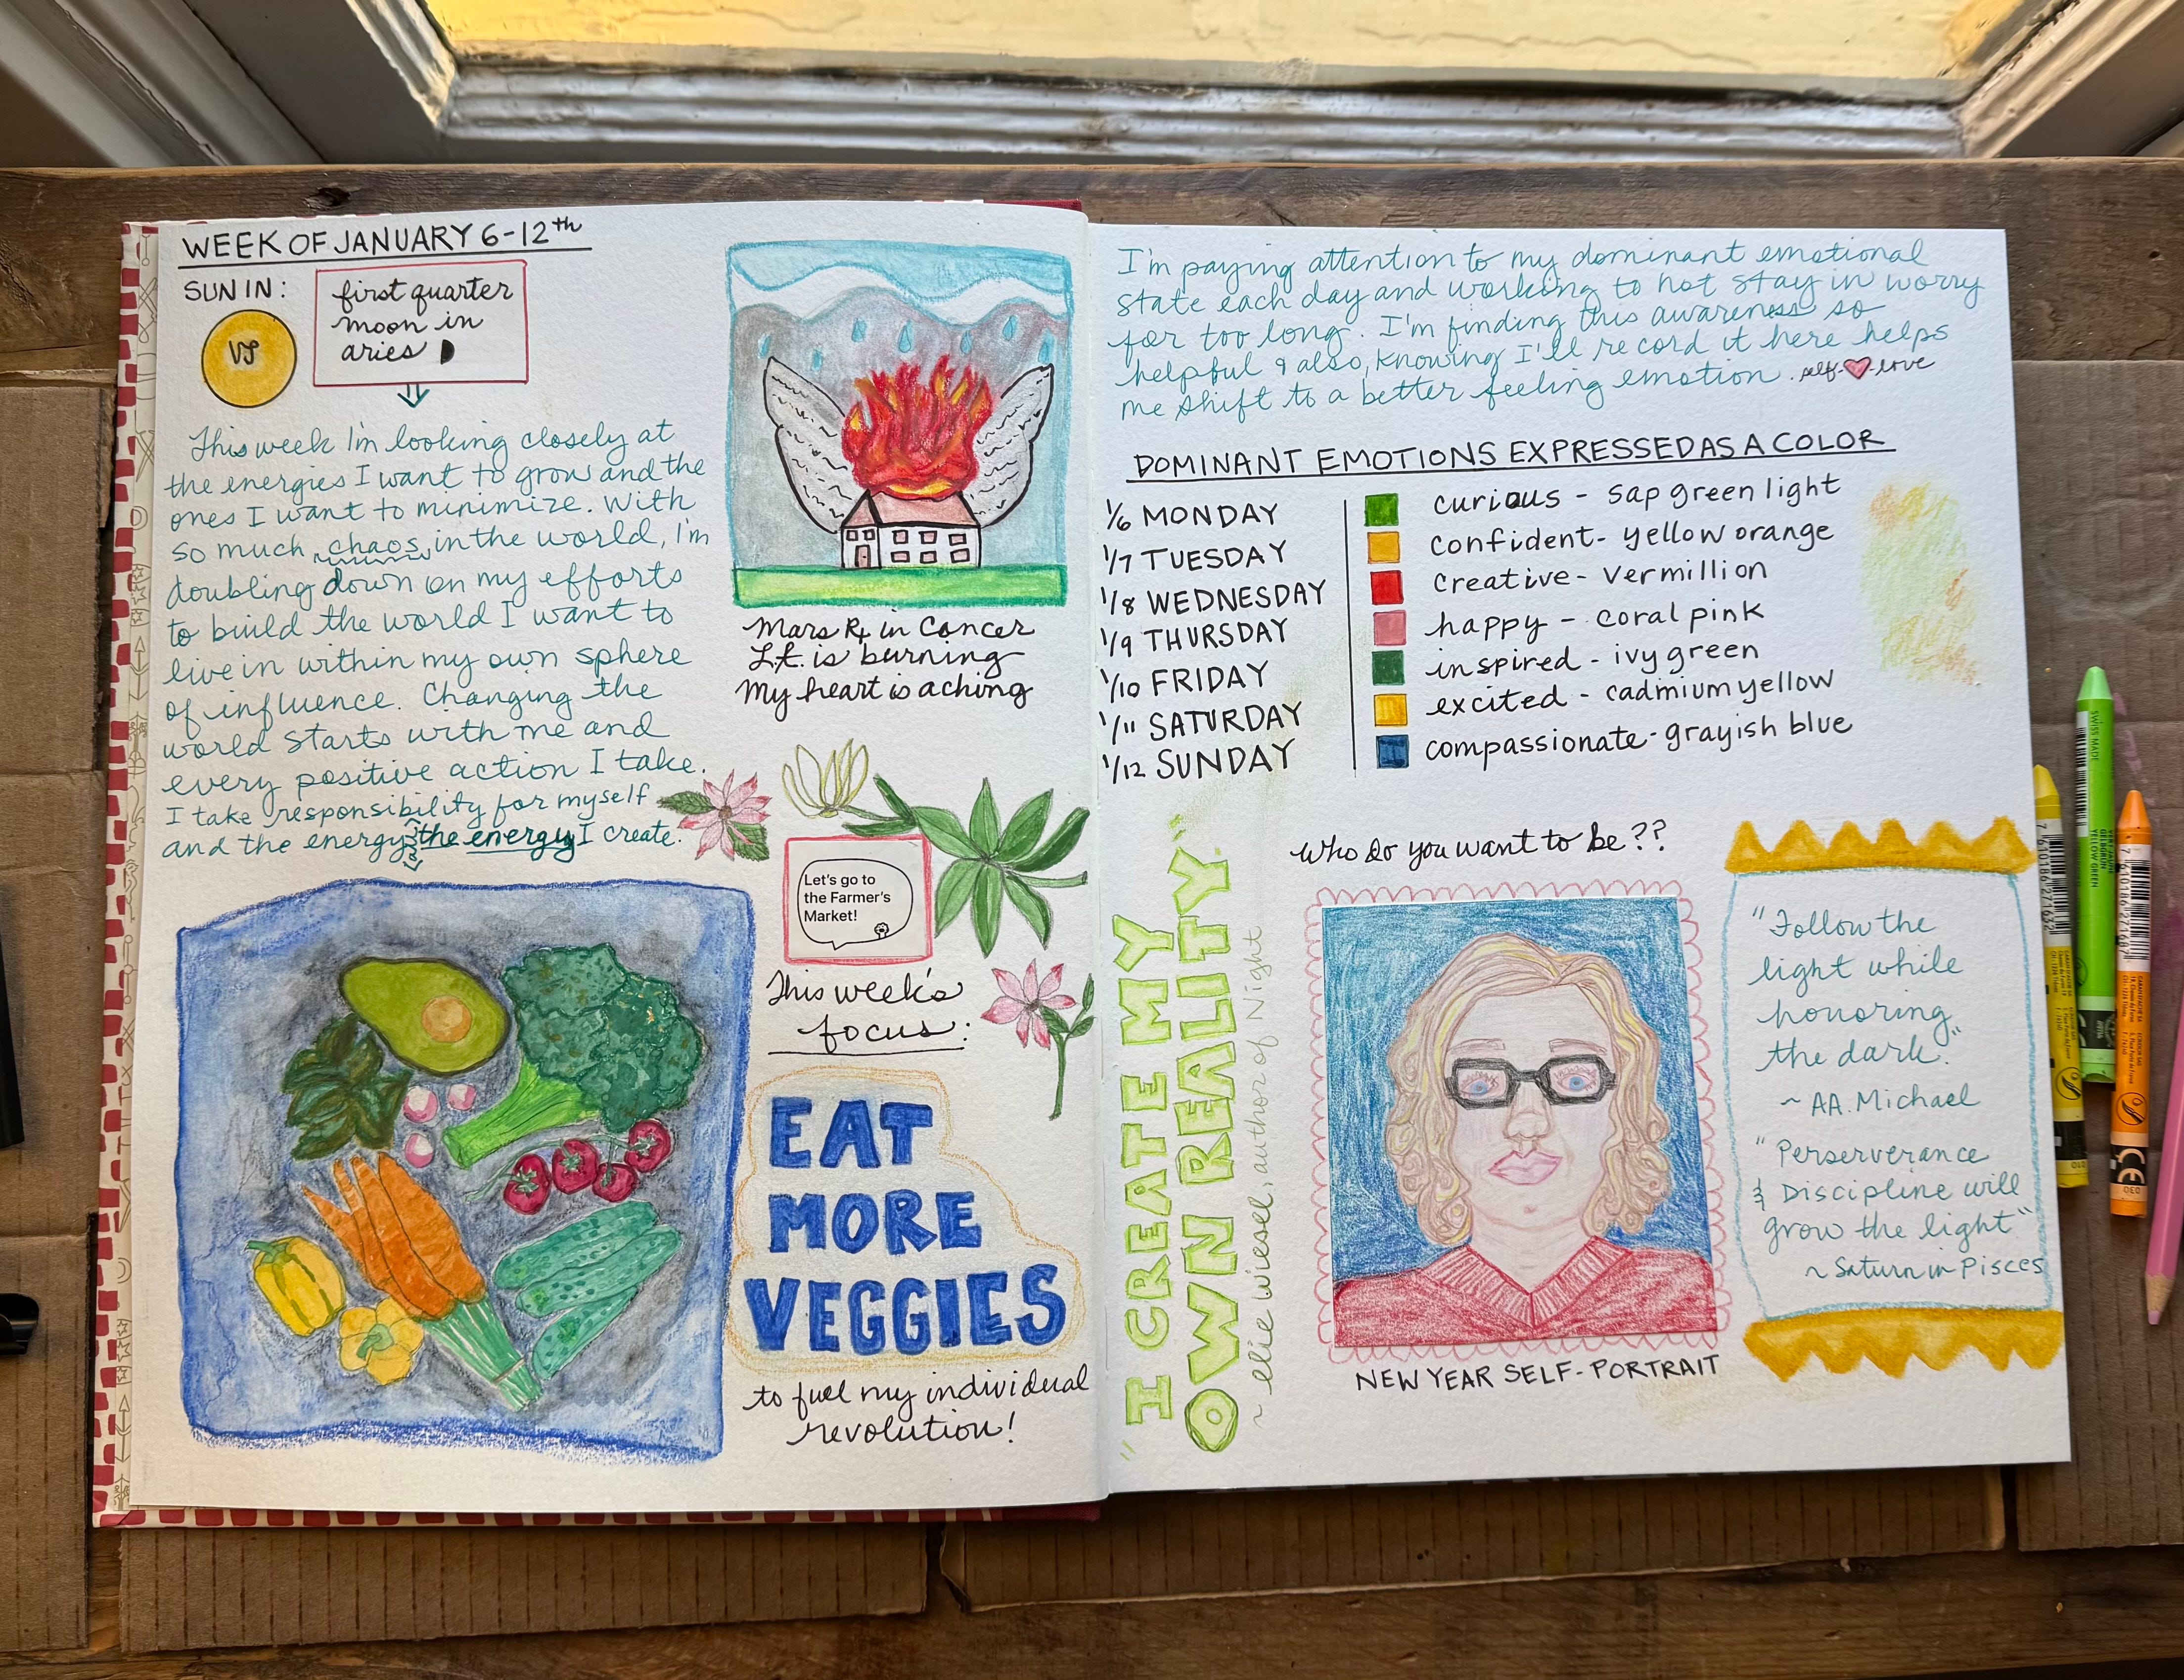 WEEK OF JANUARY 6-12th
SUN IN:
first quarter
moon in
aries
This week I'm looking closely at
the energies I want to grow and the
ones I want to minimize. With
so much chaos in the world, I'm
doubling down on my efforts
to build the world I want to
live in within my own sphere
of influence. Changing the
world starts with me and
every positive action I take.
I take responsibility for myself
and the energy the energy I create.
Mars Rx in Cancer
L.A. is burning
My heart is aching
Let's go to
the Farmer's
Market!
This week's
focus:
EAT
MORE
VEGGIES
to fuel my individual
revolution!
I'm paying attention to my dominant emotional
state each day and working to not stay in worry
for too long. I'm finding this awareness so
helpful & also, knowing I'll record it here helps
me shift to a better feeling emotion. self-love
DOMINANT EMOTIONS EXPRESSED AS A COLOR
1/6 MONDAY curious - sap green light
1/7 TUESDAY confident - yellow orange
1/8 WEDNESDAY creative - vermillion
1/9 THURSDAY happy - coral pink
1/10 FRIDAY inspired - ivy green
1/11 SATURDAY excited - cadmium yellow
1/12 SUNDAY compassionate - grayish blue
"I CREATE MY
OWN REALITY."
~ elie wiesel, author of Night
Who do you want to be??
NEW YEAR SELF-PORTRAIT
"Follow the
light while
honoring
the dark."
~ AA. Michael
"Perserverance
& Discipline will
grow the light"
~ Saturn in Pisces
SWISS MADE
YELLOW GREEN